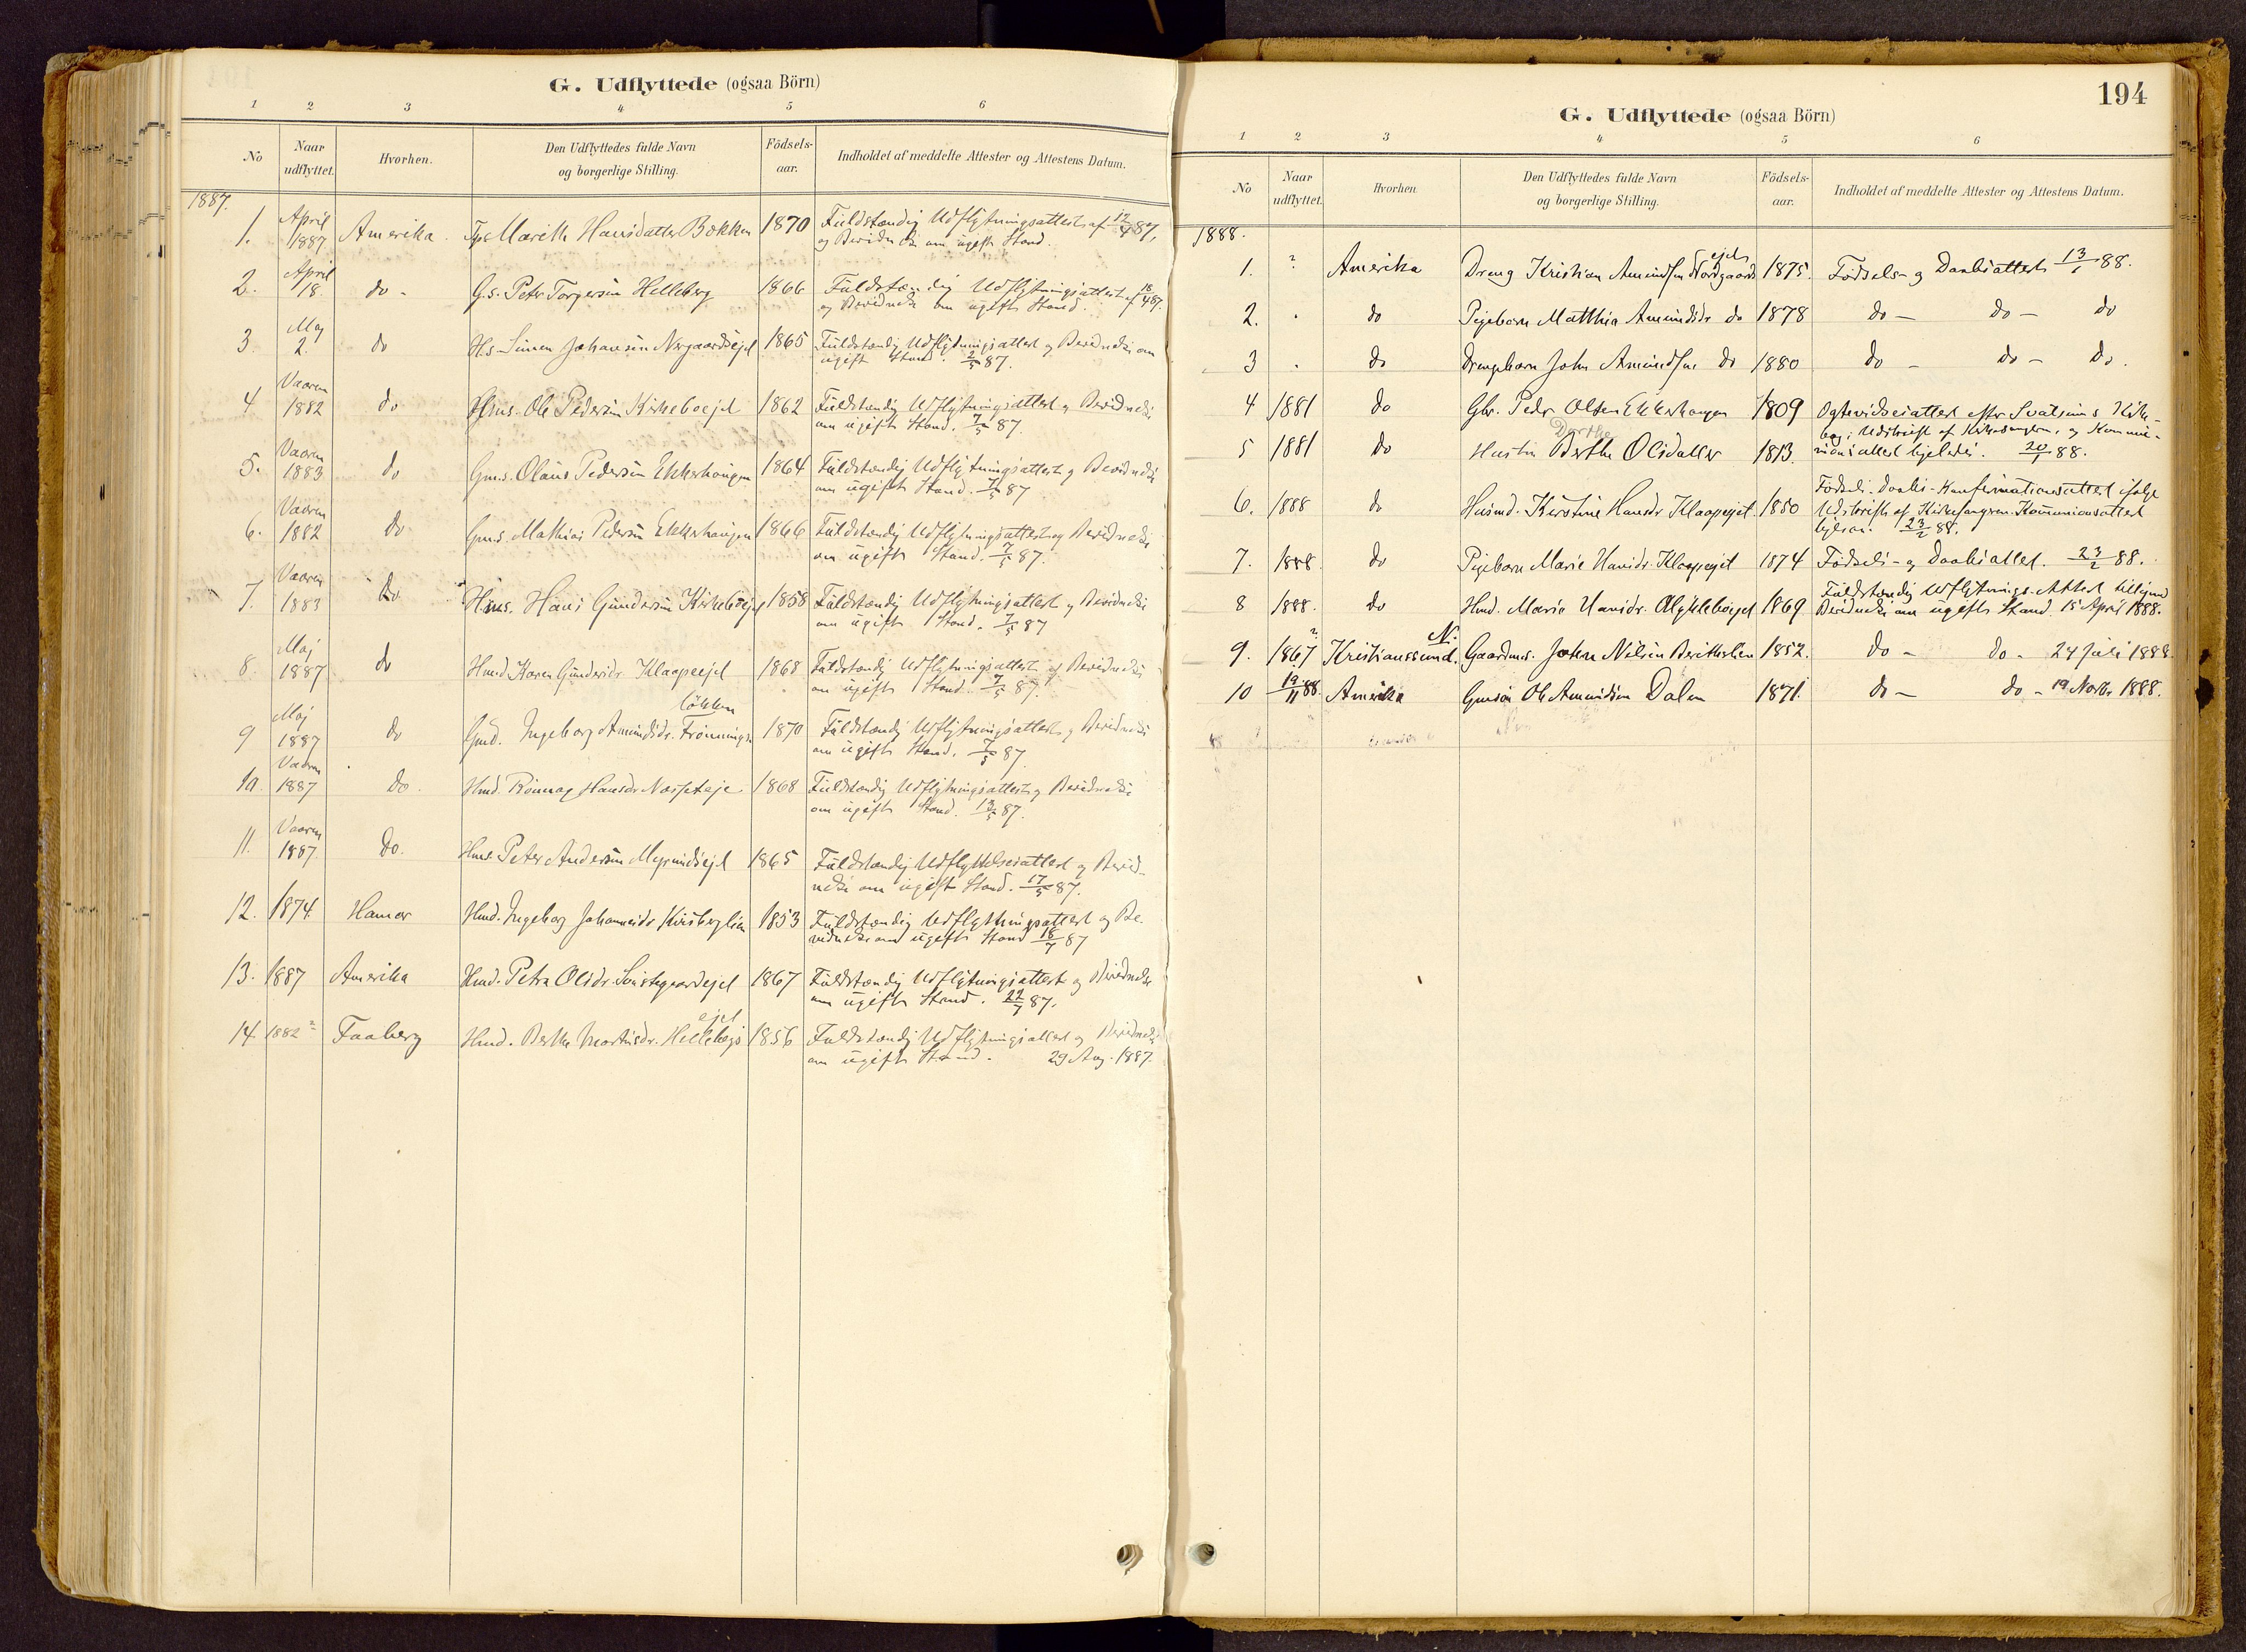 G. Udflyttede (ogsaa Börn)
1 2 3 4 5 6
No Naar udflyttet. Hvorhen. Den Udflyttedes fulde Navn og borgerlige Stilling. Födsels-aar. Indholdet af meddelte Attester og Attestens Datum.
1887.
1. April 1887 Amerika. Marith Hansdatter Bakken 1870 Fuldstændig Udflytningsattest af 12/4 87,
og om ugift Stand.
2. April 18. do - G.s. Peter Torgersen Helleberg 1866 Fuldstændig Udflytningsattest af 18/4 87.
og om ugift Stand.
3. Maj 2. do H.s. Simen Johansen 1865 Fuldstændig Udflytningsattest og om
ugift Stand. 2/5 87.
4 Vaaren 1882 do Hms. Ole Pedersen Kirkeboejet 1862 Fuldstændig Udflytningsattest og
om ugift Stand. 7/5 87.
5. Vaaren 1883 do Gms. Olaus Pedersen Ekkerhaugen 1864 Fuldstændig Udflytningsattest og
om ugift Stand. 7/5 87
6. Vaaren 1882 do Gms. Mathias Pedersen Ekkerhaugen 1866 Fuldstændig Udflytningsattest og
om ugift Stand. 7/5 87.
7. Vaaren 1883 do Hms. Hans Gundersen Kirkeboejet 1858 Fuldstændig Udflytningsattest og
om ugift Stand. 7/5 87
8. Maj 1887 do Hmd. Karen Gundersdr. Klaapeejet 1868 Fuldstændig Udflytningsattest og
om ugift Stand. 7/5 87.
løkken
9 Maj 1887 do Gmd. Ingeborg Amundsdr. 1870 Fuldstændig Udflytningsattest og
om ugift Stand. 7/5 87.
10. Vaaren 1887 do. Hmd. Rønnaug Hansdr. 1868 Fuldstændig Udflytningsattest og
om ugift Stand. 13/5 87.
11. Vaaren 1887. do. Hms. Peter Andersen 1865 Fuldstændig Udflyttelsesattest og
om ugift Stand. 17/5 87.
12. 1874 Hamar Hmd. Ingeborg Johannesdr. 1853 Fuldstændig Udflytningsattest og
om ugift Stand 18/7 87
13. 1887 Amerika Hmd. Petra Olsdr. 1867 Fuldstændig Udflytningsattest og
om ugift Stand. 22/7 87.
ejet
14. 1882? Faaberg Hmd. Berthe Mortensdr. 1856 Fuldstændig Udflytningsattest og
om ugift Stand. 29 Aug. 1887.
194
G. Udflyttede (ogsaa Börn)
1 2 3 4 5 6
No Naar udflyttet. Hvorhen. Den Udflyttedes fulde Navn og borgerlige Stilling. Födsels-aar. Indholdet af meddelte Attester og Attestens Datum.
1888.
ejet
1. ? Amerika Dreng Kristian Amundsen Nordgaards 1875. Fødsels- og Daabsattest 13/1 88.
2. " do Pigebarn Matthia Amundsdr. do 1878 do - do - do
3 " do Drengebarn John Amundsen do 1880 do - do - do.
4 1881 do Gbr. Peder Olsen Ekkerhaugen 1809 efter Svatsums Kirke-
Dorthe
bog; Udskrift af Kirkesangeren, og Kommu-
5 1881 do Hustru Berthe Olsdatter 1813. nionsattest ligeledes. 20/1 88.
6. 1888 do Husmd. Kirstine Hansdr. Klaapeejet 1850 Fødsels- Daabs- Konfirmationsattest ifølge
Udskrift af Kirkesangeren. Kommunionsattest
23/2 88.
7. 1888. do Pigebarn Marie Hansdr. Klaapeejet 1874 Fødsels- og Daabsattest. 23/2 88.
8 1888. do Hmd. Marie Hansdr. 1869 Fuldstændig Udflytnings-Attest
om ugift Stand. 15 April 1888.
N.
9. 1867? Kristianssund. Gaardms. Johan Nilsen 1852. do - do - 24 Juli 1888.
10 19/11 88. Amerika Gmsøn Ole Amundsen Dalen 1871. do - do - 19 Novbr. 1888.